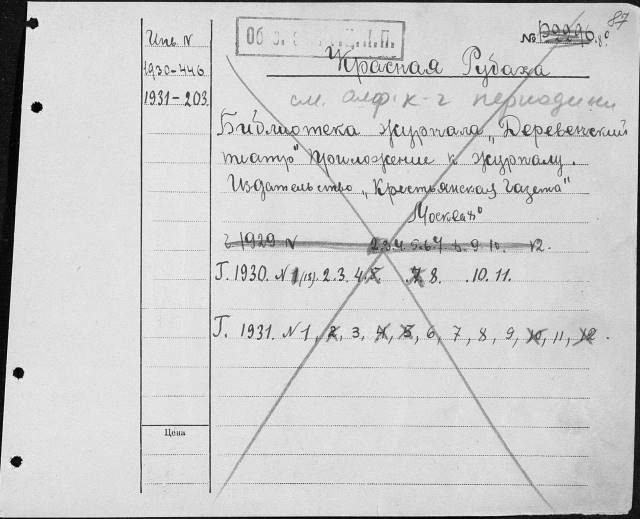 87
Инв. N
1930-446
1931-203.
№
8°
Красная Рубаха
см. алф. к-г периодики
Библиотека журнала „Деревенский
театр" Приложение к журналу.
Издательство „Крестьянская Газета"
Москва 8°
г 1929 N 2.3.4.5.6.7.8.9.10. 12.
Г. 1930. N 1 (13). 2. 3. 4. 5. 7. 8. .10. 11.
Г. 1931. N 1, 2, 3, 4, 5, 6, 7, 8, 9, 10, 11, 12.
Цена